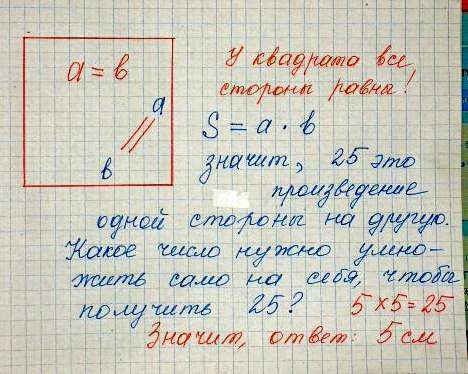 a = b
a
//
b
У квадрата все
стороны равны!
S = a · b
значит, 25 это
произведение
одной стороны на другую.
Какое число нужно умно-
жить само на себя, чтобы
получить 25? 5 × 5 = 25
Значит, ответ: 5 см